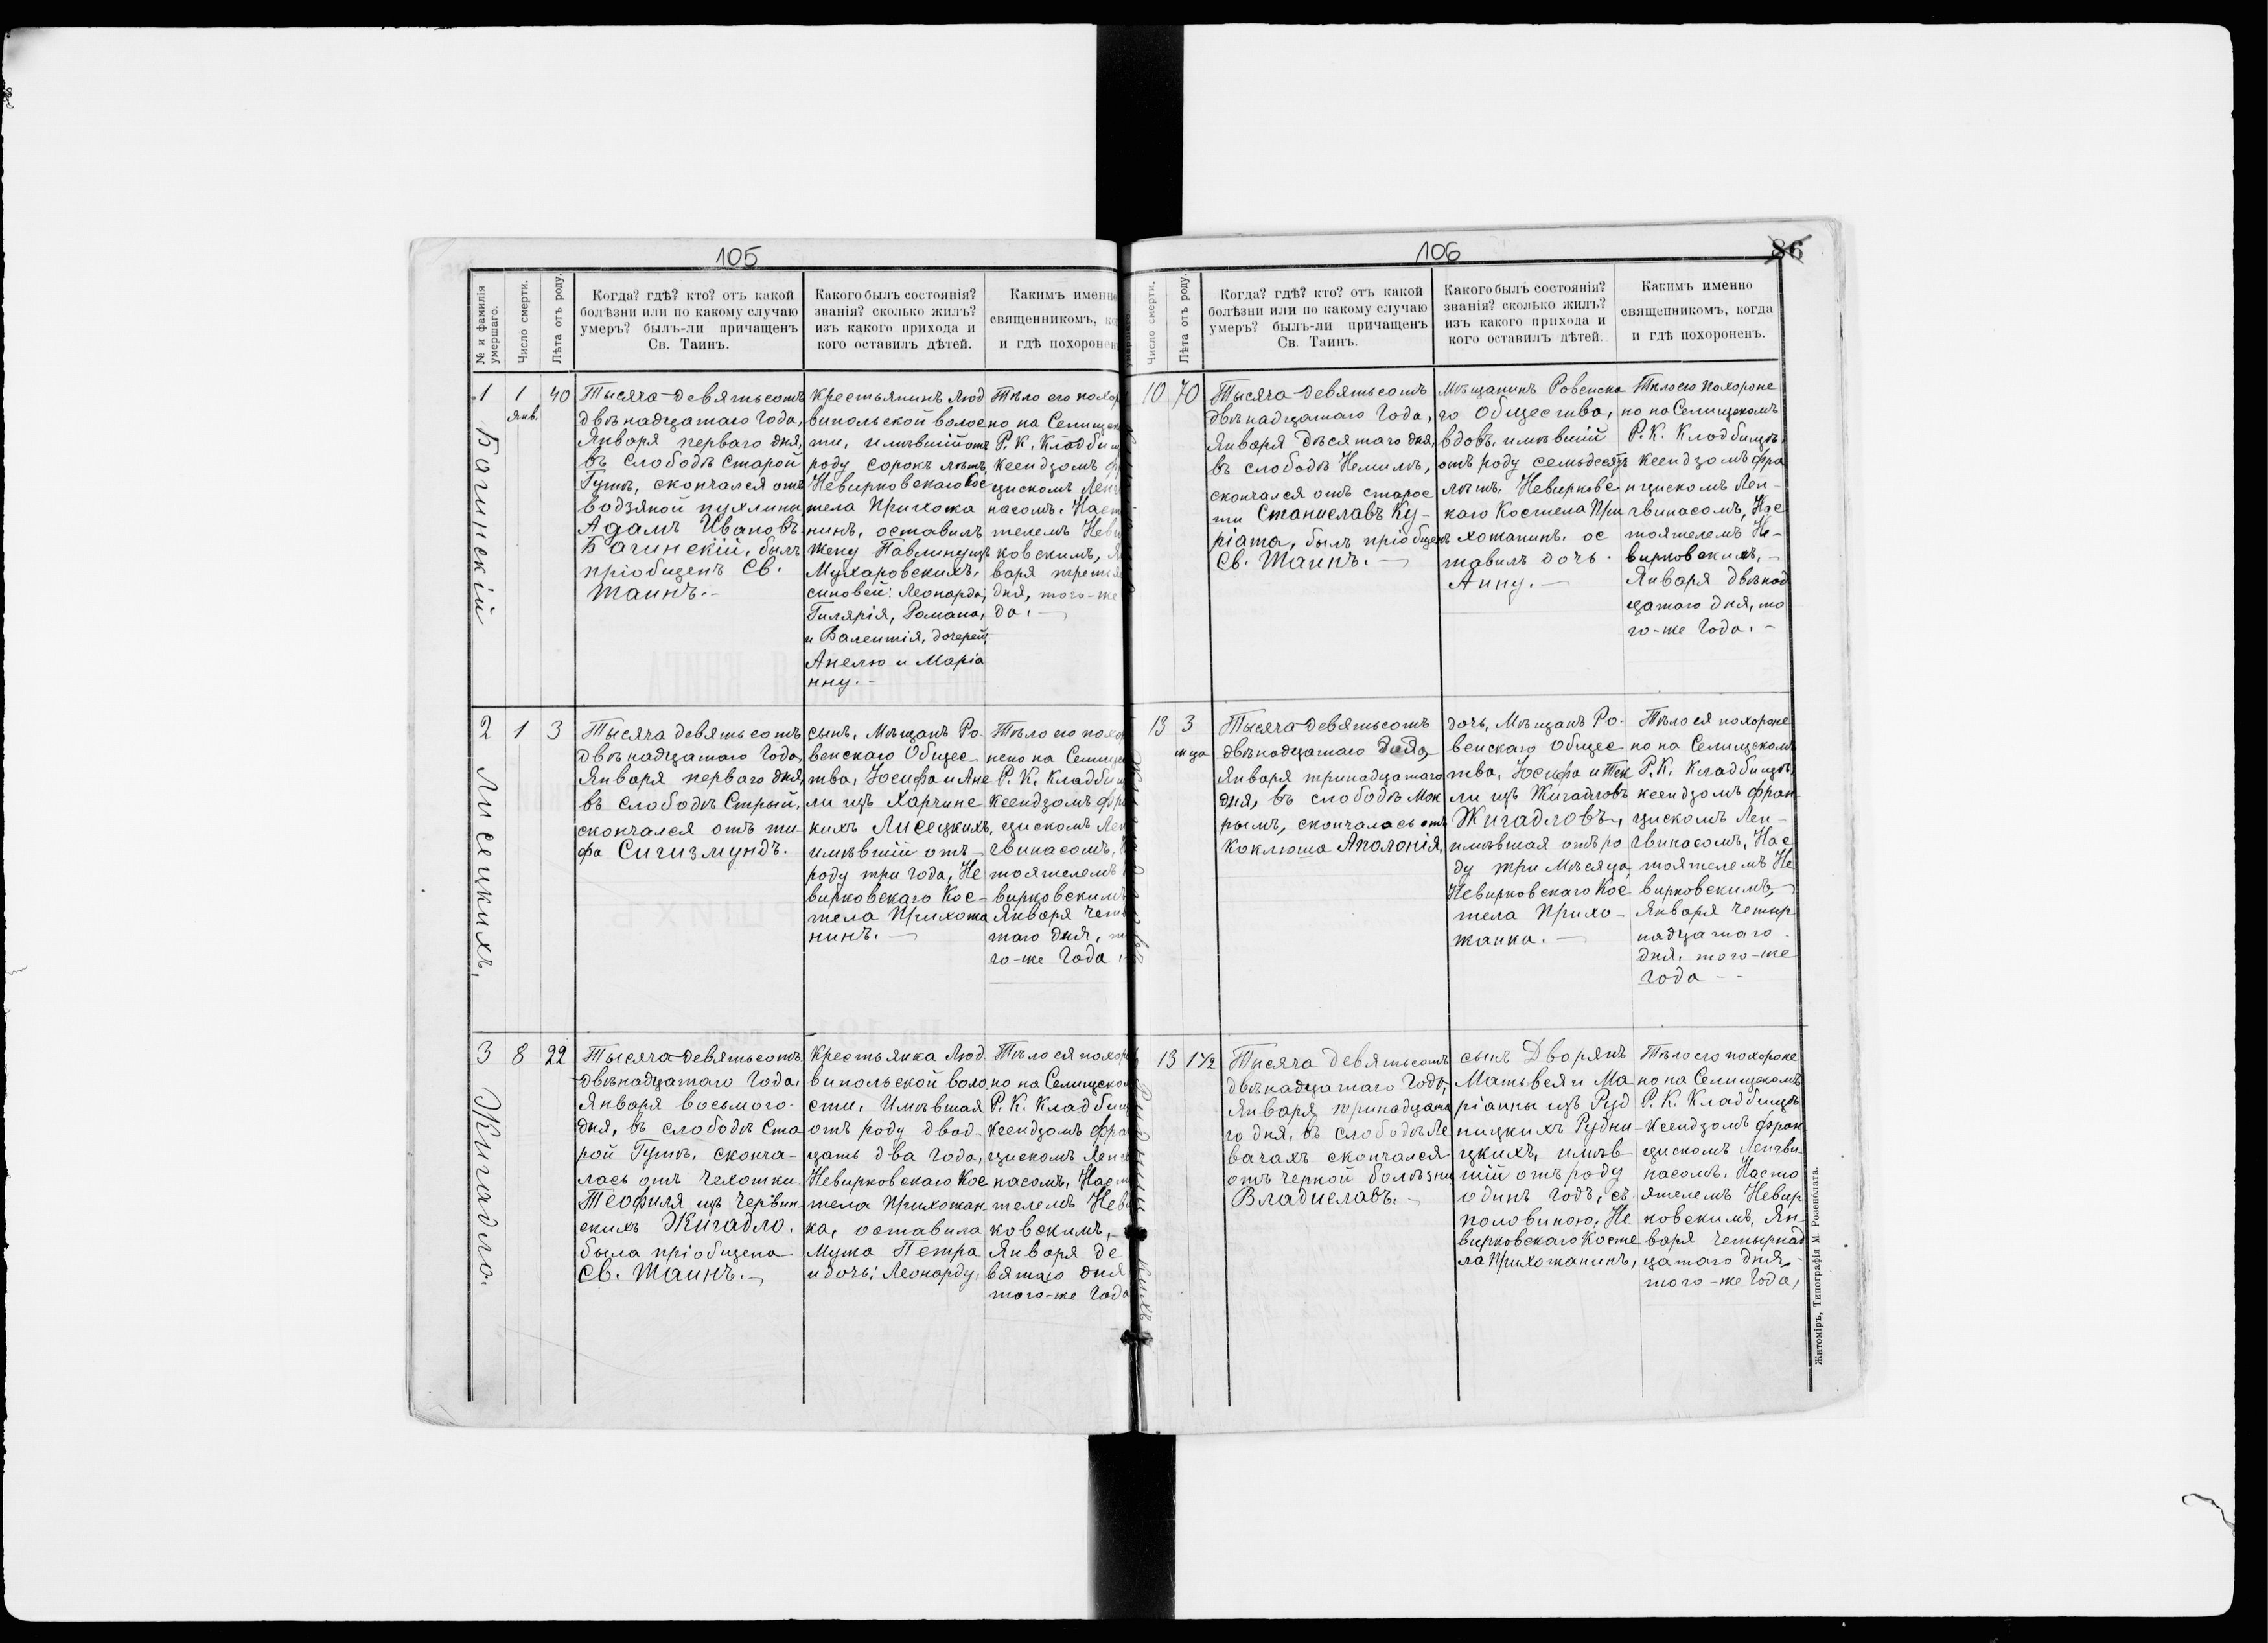 105
№ и фамилія умершаго.
Число смерти.
Лѣта отъ роду.
Когда? гдѣ? кто? отъ какой
болѣзни или по какому случаю
умеръ? былъ-ли причащенъ
Св. Таинъ.
Какого былъ состоянія?
званія? сколько жилъ?
изъ какого прихода и
кого оставилъ дѣтей.
Какимъ именно
священникомъ,
и гдѣ похоронен
1
Багинскій
1
янв.
40
Тысяча девятьсотъ
двѣнадцатаго Года,
Января перваго дня,
въ слободѣ Старой
Гутѣ, скончался отъ
водзяной пухлины
Адамъ Ивановъ
Багинскій, былъ
пріобщенъ Св.
Таинъ.-
Крестьянинъ Люд
випольской волос
ти, имѣвшій отъ
роду сорокъ лѣтъ,
Невирковскаго Кос
тела Прихожа
нинъ, оставилъ
жену Павлину изъ
Мухаровскихъ,
сыновей: Леонарда,
Гилярія, Романа,
и Валентія, дочерей:
Анелю и Маріа
нну.-
Тѣло его похор
но на Селищск
Р. К. Кладбищ
ксендзомъ ф
цискомъ Ленг
насомъ. Наст
телемъ Неви
ковскимъ, Я
варя третья
дня, того-же
да.
2
Лисецкихъ,
1
3
Тысяча девятьсотъ
двѣнадцатаго Года,
Января перваго дня,
въ слободѣ Стрый,
скончался отъ ти-
фа Сигизмундъ.
сынъ, Мѣщанъ Ро-
венскаго Общес
тва, Іосифа и Ане
ли изъ Харчинс
кихъ Лисецкихъ,
имѣвшій отъ
роду три года, Не
вирковскаго Кос-
тела Прихожа
нинъ.
Тѣло его похо
нено на Селище
Р. К. Кладби
ксендзомъ фр
цискомъ Лен
гвинасомъ,
тоятелемъ
вирковскимъ
Января четв
таго дня, т
го-же Года
3
Жигадло.
8
22
Тысяча девятьсотъ
двѣнадцатаго Года,
Января восьмого-
дня, въ слободѣ Ста
рой Гутѣ, сконча-
лась отъ чехотки
Теофиля изъ Червин-
скихъ Жигадло.
была пріобщена
Св. Таинъ.
Крестьянка Люд
випольской воло
сти, Имѣвшая
отъ роду двад-
цать два Года,
Невирковскаго Кос
тела Прихожан
ка, оставила
Мужа Петра
и дочь: Леонарду,
Тѣло ея похор
но на Селищско
Р. К. Кладбищ
ксендзомъ фра
цискомъ Ленг
насомъ, Наст
телемъ Неви
ковскимъ,
Января де
вятаго дня
того-же Года
106
86
Число смерти.
Лѣта отъ роду.
Когда? гдѣ? кто? отъ какой
болѣзни или по какому случаю
умеръ? былъ-ли причащенъ
Св. Таинъ.
Какого былъ состоянія?
званія? сколько жилъ?
изъ какого прихода и
кого оставилъ дѣтей.
Какимъ именно
священникомъ, когда
и гдѣ похороненъ.
10
70
Тысяча девятьсотъ
двѣнадцатаго Года,
Января десятаго дня,
въ слободѣ Немилѣ,
скончался отъ старос
ти Станиславъ Ку-
ріата, былъ пріобщенъ
Св. Таинъ.
Мѣщанинъ Ровенска
го Общества,
вдовъ, имѣвшій
отъ роду семьдесятъ
лѣтъ, Невирковс
каго Костела При
хожанинъ. ос
тавилъ дочь
Анну.
Тѣло его похороне
но на Селищскомъ
Р. К. Кладбищѣ,
ксендзомъ Фра
нцискомъ Лен-
гвинасомъ, Нас
тоятелемъ Не-
вирковскимъ,
Января двѣнад
цатаго дня, то
го-же Года.
13
3
м-ца
Тысяча девятьсотъ
двѣнадцатаго Года,
Января тринадцатаго
дня, въ слободѣ Мок
рымъ, скончалась отъ
коклюша Аполонія,
дочь, Мѣщанъ Ро-
венскаго Общес
тва, Іосифа и Тек
ли изъ Жигадловъ
Жигадловъ,
имѣвшая отъ ро
ду три Мѣсяца,
Невирковскаго Кос
тела Прихо-
жанка.
Тѣло ея похороне
но на Селищскомъ
Р. К. Кладбищѣ,
ксендзомъ Фран
цискомъ Лен-
гвинасомъ, Нас
тоятелемъ Не
вирковскимъ,
Января Четыр
надцатаго
дня, того-же
Года
13
1 1/2
Тысяча девятьсотъ
двѣнадцатаго Года,
Января тринадцата
го дня, въ слободѣ Ле
вачахъ скончался
отъ черной болѣзни
Владиславъ.
сынъ Дворянъ
Матвея и Ма
ріанны изъ Руд
ницкихъ Рудни
цкихъ, имѣв-
шій отъ роду
одинъ Годъ, съ
половиною, Не
вирковскаго Косте
ла Прихожанинъ,
Тѣло его похороне
но на Селищскомъ
Р. К. Кладбищѣ
ксендзомъ Фран
цискомъ Ленгви
насомъ. Насто
ятелемъ Невир
ковскимъ, Ян-
варя четырнад
цатаго дня,
того-же Года,
Житоміръ, Типографія М. Розенблата.